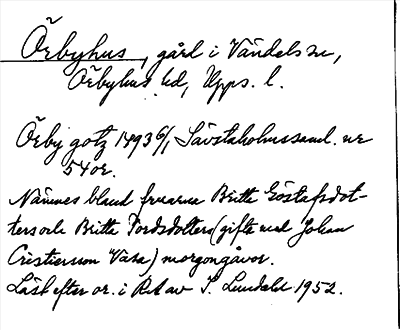 Örbyhus, gård i Vändels sn,
Örbyhus hd, Upps. l.
Örby gotz 1493 6/1 Sävstaholmssaml. nr
54 or.
Nämnes bland fruarna Britte Göstafsdot-
ters och Britte Tordsdotters (gifte med Johan
Cristiersson Vasa) morgongåvor.
Läst efter or. i RA av S. Lundahl 1952.